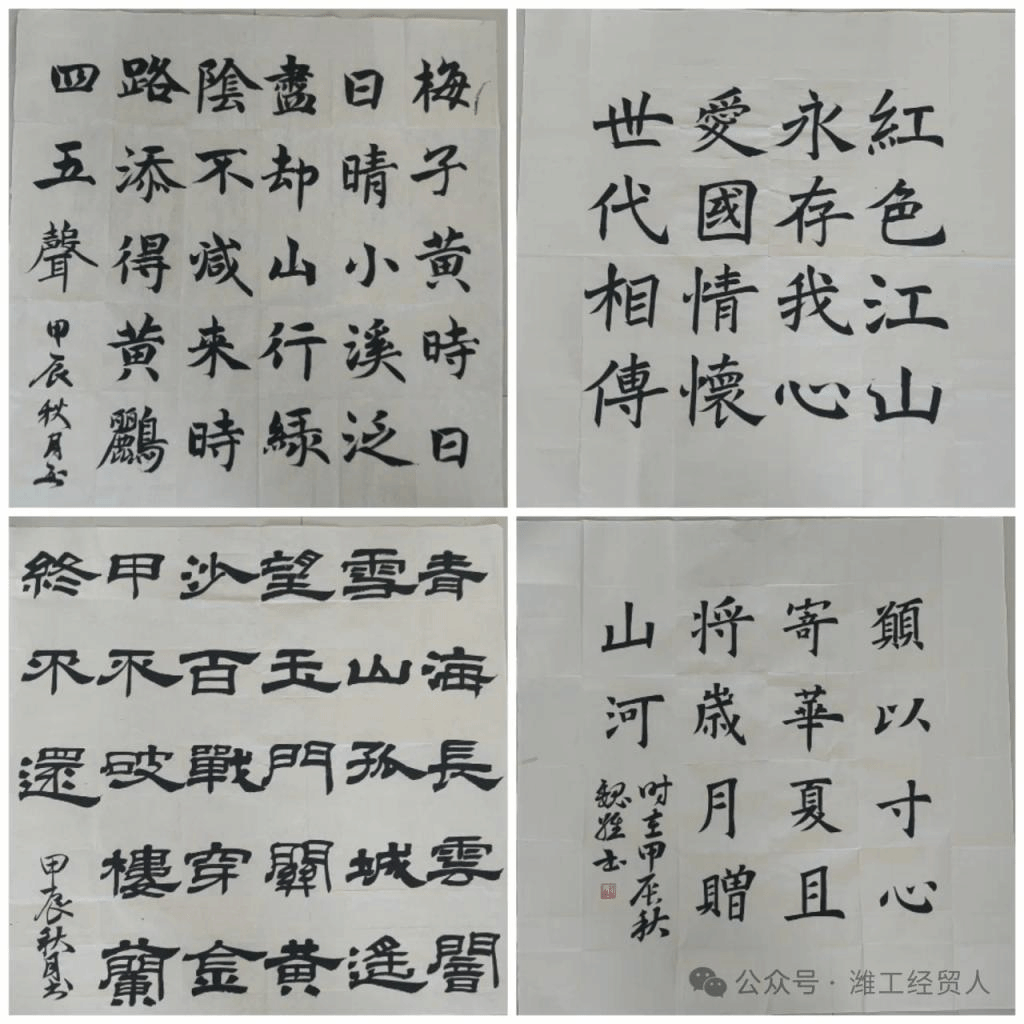 梅子黄時日
日晴小溪泛
盡却山行緑
陰不减來時
路添得黄鸝
四五聲
甲辰秋月书
紅色江山
永存我心
愛國情懷
世代相傳
青海長雲闇
雪山孤城遥
望玉門關黄
沙百戰穿金
甲不破樓蘭
終不還
甲辰秋月书
願以寸心
寄華夏且
将歲月贈
山河
时在甲辰秋
魏书
公众号·潍工经贸人